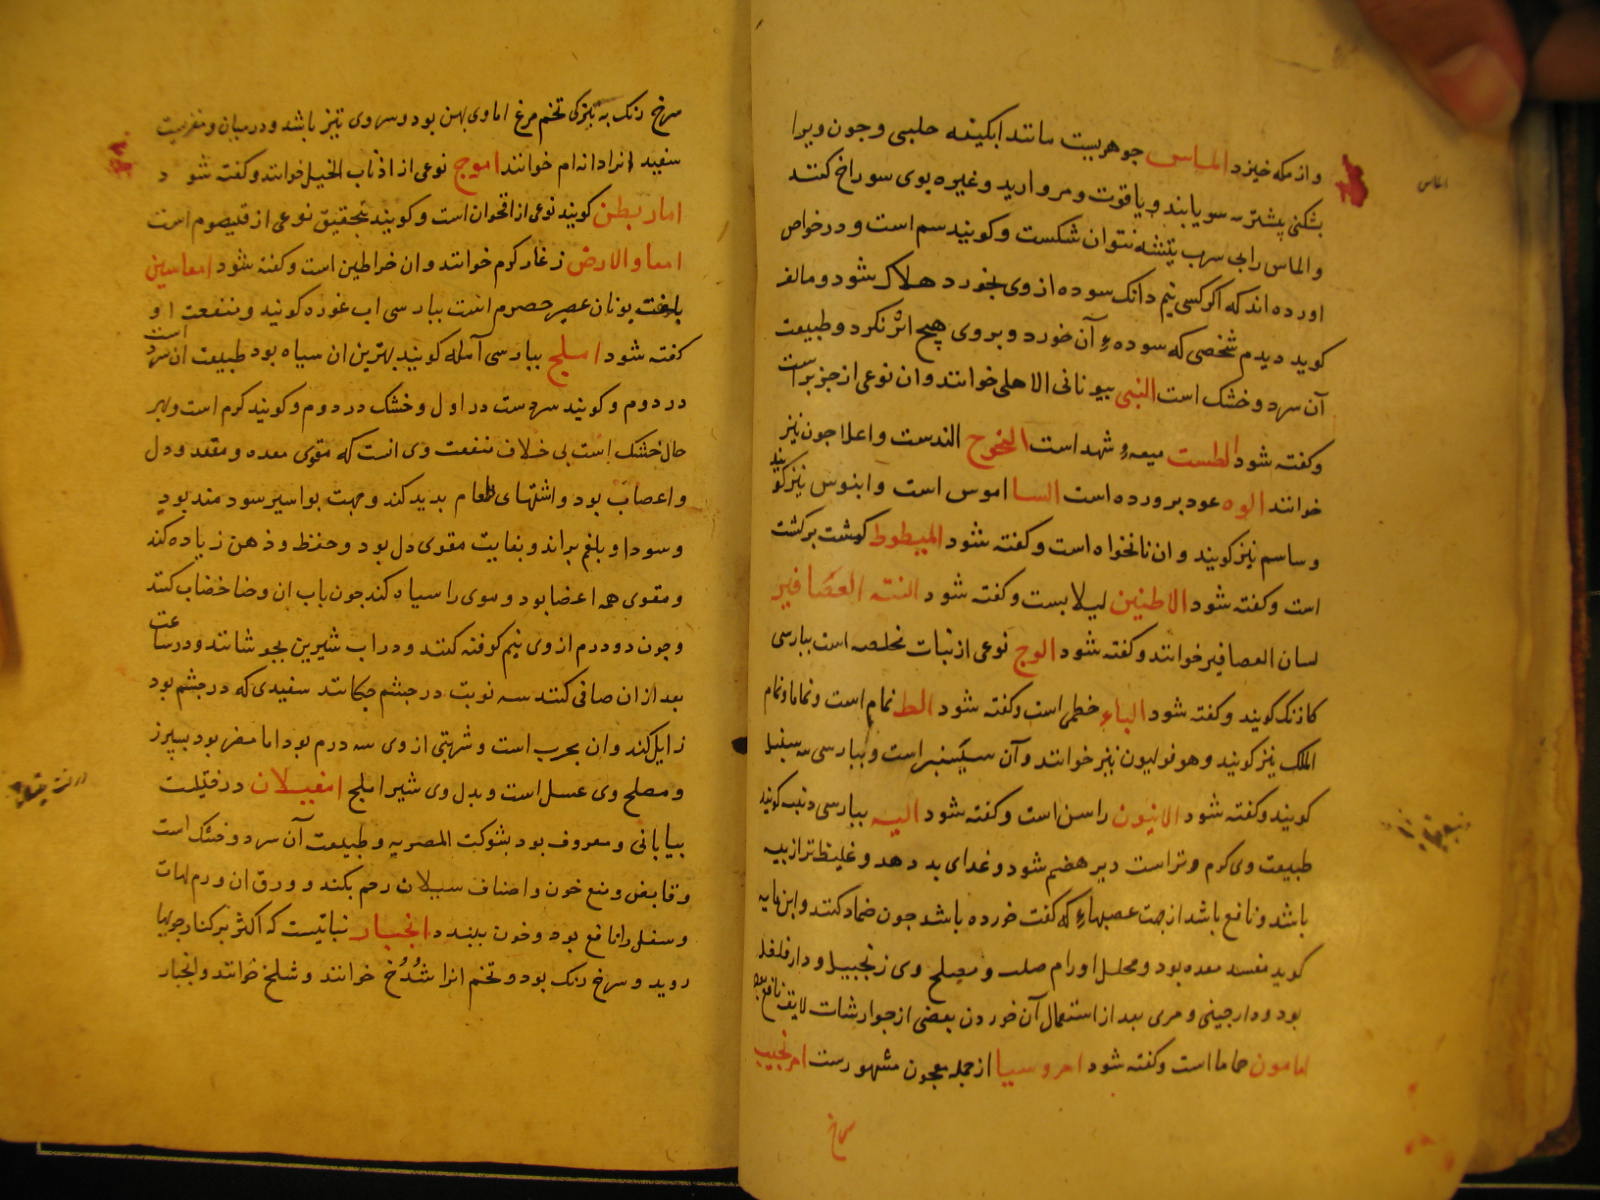 و از مکه خیزد الماس جوهریست مانند ابکینه حلبی و جون ویرا
بشکنی بیشتر سه سو یابند و یاقوت و مروارید و غیره بوی سوراخ کنند
و الماس را بی سرب نتوان شکست و کویند سم است و در خواص
اورده اند که اکر کسی نیم دانک سوده از وی بخورد هلاک شود و مالف
کوید دیدم شخصی که سودهٔ آن خورد و بروی هیچ اثر نکرد و طبیعت
آن سرد و خشک است النبی بیونانی الاهلی خوانند و ان نوعی از جزبراست
و کفته شود الطست میعهٔ شهد است النجوج الندست و اعلا جون نیز
خوانند الوه عود بر ورده است السا اموس است و ابنوس نیز کویند
و ساسم نیز کویند و ان نانخواه است و کفته شود المبطوط کوشت برکشت
است و کفته شود الاطنین لبلابست و کفته شود النته العصافیر
لسان العصافیر خوانند و کفته شود الوج نوعی از نبات مخلصه است ببارسی
کازنک کویند و کفته شود الباء خطمی است و کفته شود الط نمام است و نماما و نمام
الملک نیز کویند و هوفولیون نیز خوانند و آن سیسنبر است و ببارسی سه سنبل
کویند و کفته شود الانیون راسن است و کفته شود الیه ببارسی دنبه کویند
طبیعت وی کرم و تر است دیر هضم شود و غدای بد دهد و غلیظ تر از بیه
باشد و نافع باشد از جهت عصبهاء که کفت خورده باشد جون ضماد کنند و ابن ماسه
کوید مفسد معده بود و محلل اورام صلب و مصلح وی زنجبیل و دار فلفل
بود و دارجینی و مری بعد از استعمال آن خوردن بعضی از جوارشات لایق نافع بود
امامون حاما است و کفته شود امروسیا از جمله معجون مشهورست امرنجیب
سرخ
سرخ رنک به بزرکی تخم مرغ اما وی بهن بود و سروی تیز باشد و درمیان و مغزیست
سفید انرا دانه ام خوانند اموج نوعی از اذناب الخیل خوانند و کفته شود
اماربطن کویند نوعی از اقحوان است و کویند بتحقیق نوعی از قیصوم است
امعاو الارض زغار کرم خوانند و ان خراطین است و کفته شود امعاسین
بلغت یونان عصیر حصرم است ببارسی اب غوره کویند و منفعت او
کفته شود املج ببارسی آمله کویند بهترین ان سیاه بود طبیعت ان سرد است
در دوم و کویند سردست در اول و خشک در دوم و کویند کرم است و بهر
حال خشک است بی خلاف منفعت وی انست که مقوی معده و مقعد و دل
و اعصاب بود و اشتهای طعام بدید کند و جهت بواسیر سودمند بود
و سودا و بلغم براند و بغایت مقوی دل بود و حفظ و ذهن زیاده کند
و مقوی همه اعضا بود و موی را سیاه کند جون باب ان و حنا خضاب کنند
و جون دو درم از وی نیم کوفته کنند و در اب شیرین بجوشانند و در ساعت
بعد از ان صافی کنند سه نوبت در جشم جکانند سفیدی که در جشم بود
زایل کند و ان مجرب است و شربتی از وی سه درم بود اما مضر بود بسپرز
و مصلح وی عسل است و بدل وی شیر املج امغیلان درختیست
بیابانی و معروف بود بشوکت المصریه و طبیعت آن سرد و خشک است
و قابض و منع خون و اصناف سیلان رحم بکند و ورق ان ورم لهات
و سفل را نافع بود و خون ببندد انجبار نباتیست که اکثر بر کنار جویها
روید و سرخ رنک بود و تخم انرا شدخ خوانند و شلخ خوانند و انجبار
الماس